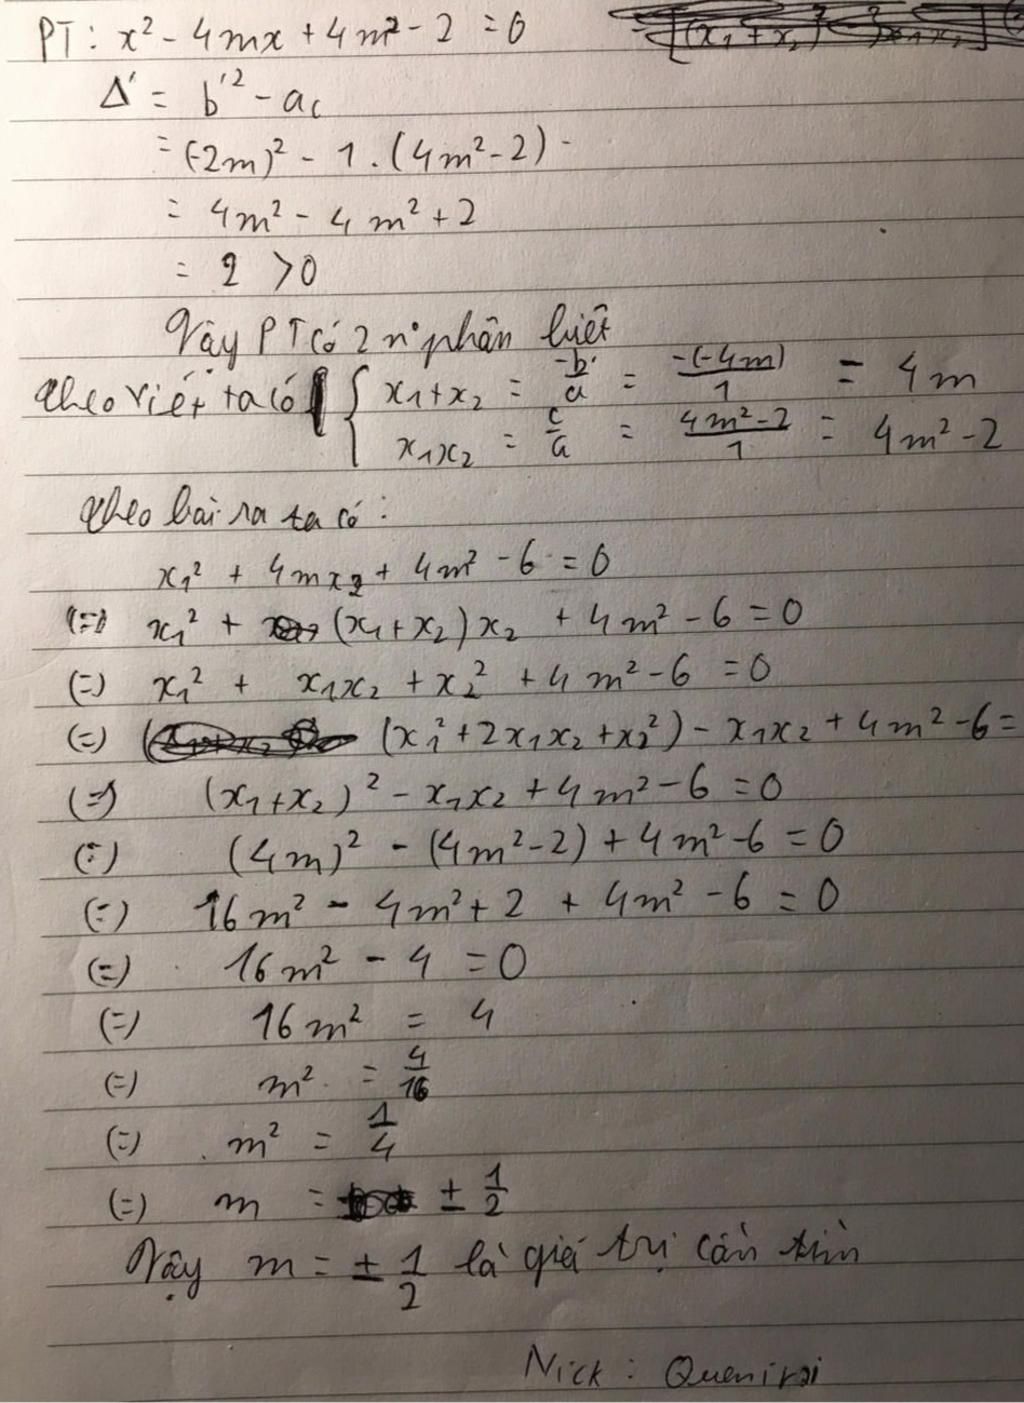 PT: x² - 4mx + 4m² - 2 = 0
Δ' = b'² - ac
= (-2m)² - 1.(4m² - 2)
= 4m² - 4m² + 2
= 2 > 0
Vậy PT có 2 n° phân biệt
Theo Viét ta có { x₁+x₂ = -b/a = -(-4m)/1 = 4m
x₁x₂ = c/a = 4m²-2/1 = 4m² - 2
Theo bài ra ta có:
x₁² + 4mx₂ + 4m² - 6 = 0
(=) x₁² + (x₁+x₂)x₂ + 4m² - 6 = 0
(=) x₁² + x₁x₂ + x₂² + 4m² - 6 = 0
(=) (x₁² + 2x₁x₂ + x₂²) - x₁x₂ + 4m² - 6 =
(=) (x₁+x₂)² - x₁x₂ + 4m² - 6 = 0
(=) (4m)² - (4m² - 2) + 4m² - 6 = 0
(=) 16m² - 4m² + 2 + 4m² - 6 = 0
(=) 16m² - 4 = 0
(=) 16m² = 4
(=) m² = 4/16
(=) m² = 1/4
(=) m = ± 1/2
Vậy m = ± 1/2 là giá trị cần tìm
Nick :